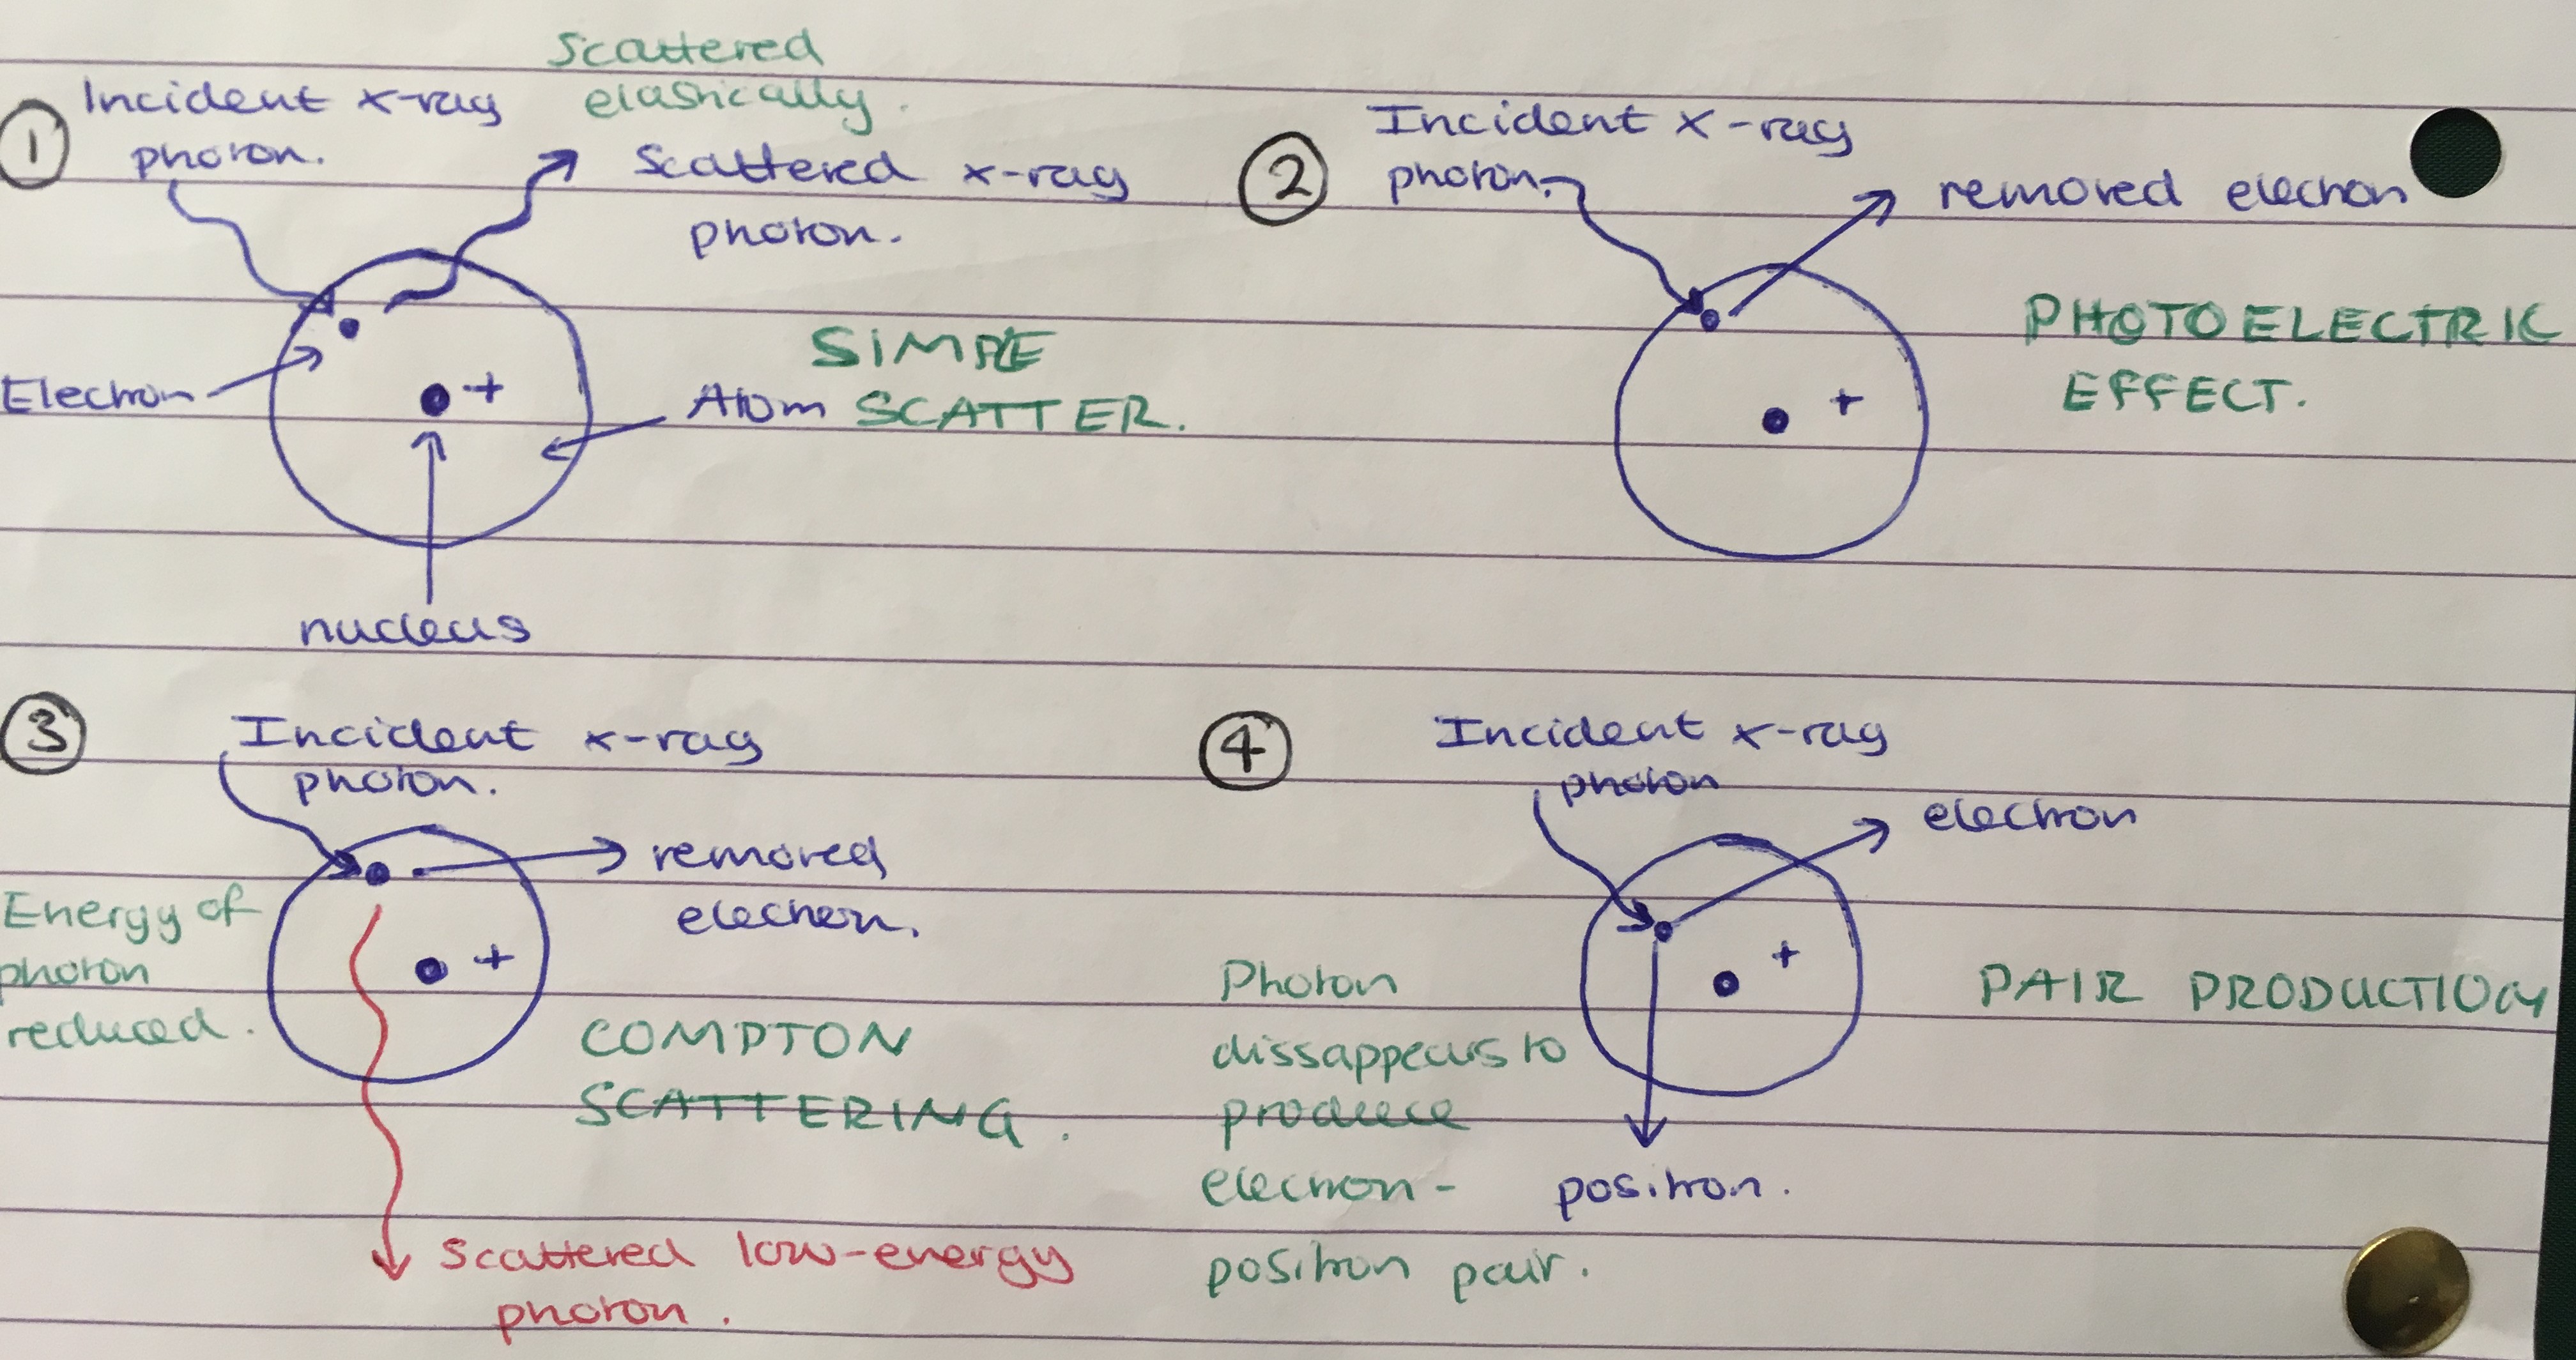 ①
Incident x-ray
photon.
Scattered
elastically.
Scattered x-ray
photon.
Electron
+
Atom
SIMPLE
SCATTER.
nucleus
②
Incident x-ray
photon.
removed electron
+
PHOTOELECTRIC
EFFECT.
③
Incident x-ray
photon.
removed
electron.
Energy of
photon
reduced.
+
COMPTON
SCATTERING.
Scattered low-energy
photon.
④
Incident x-ray
photon
electron
+
Photon
dissappears to
produce
electron-
positron pair.
PAIR PRODUCTION
positron.